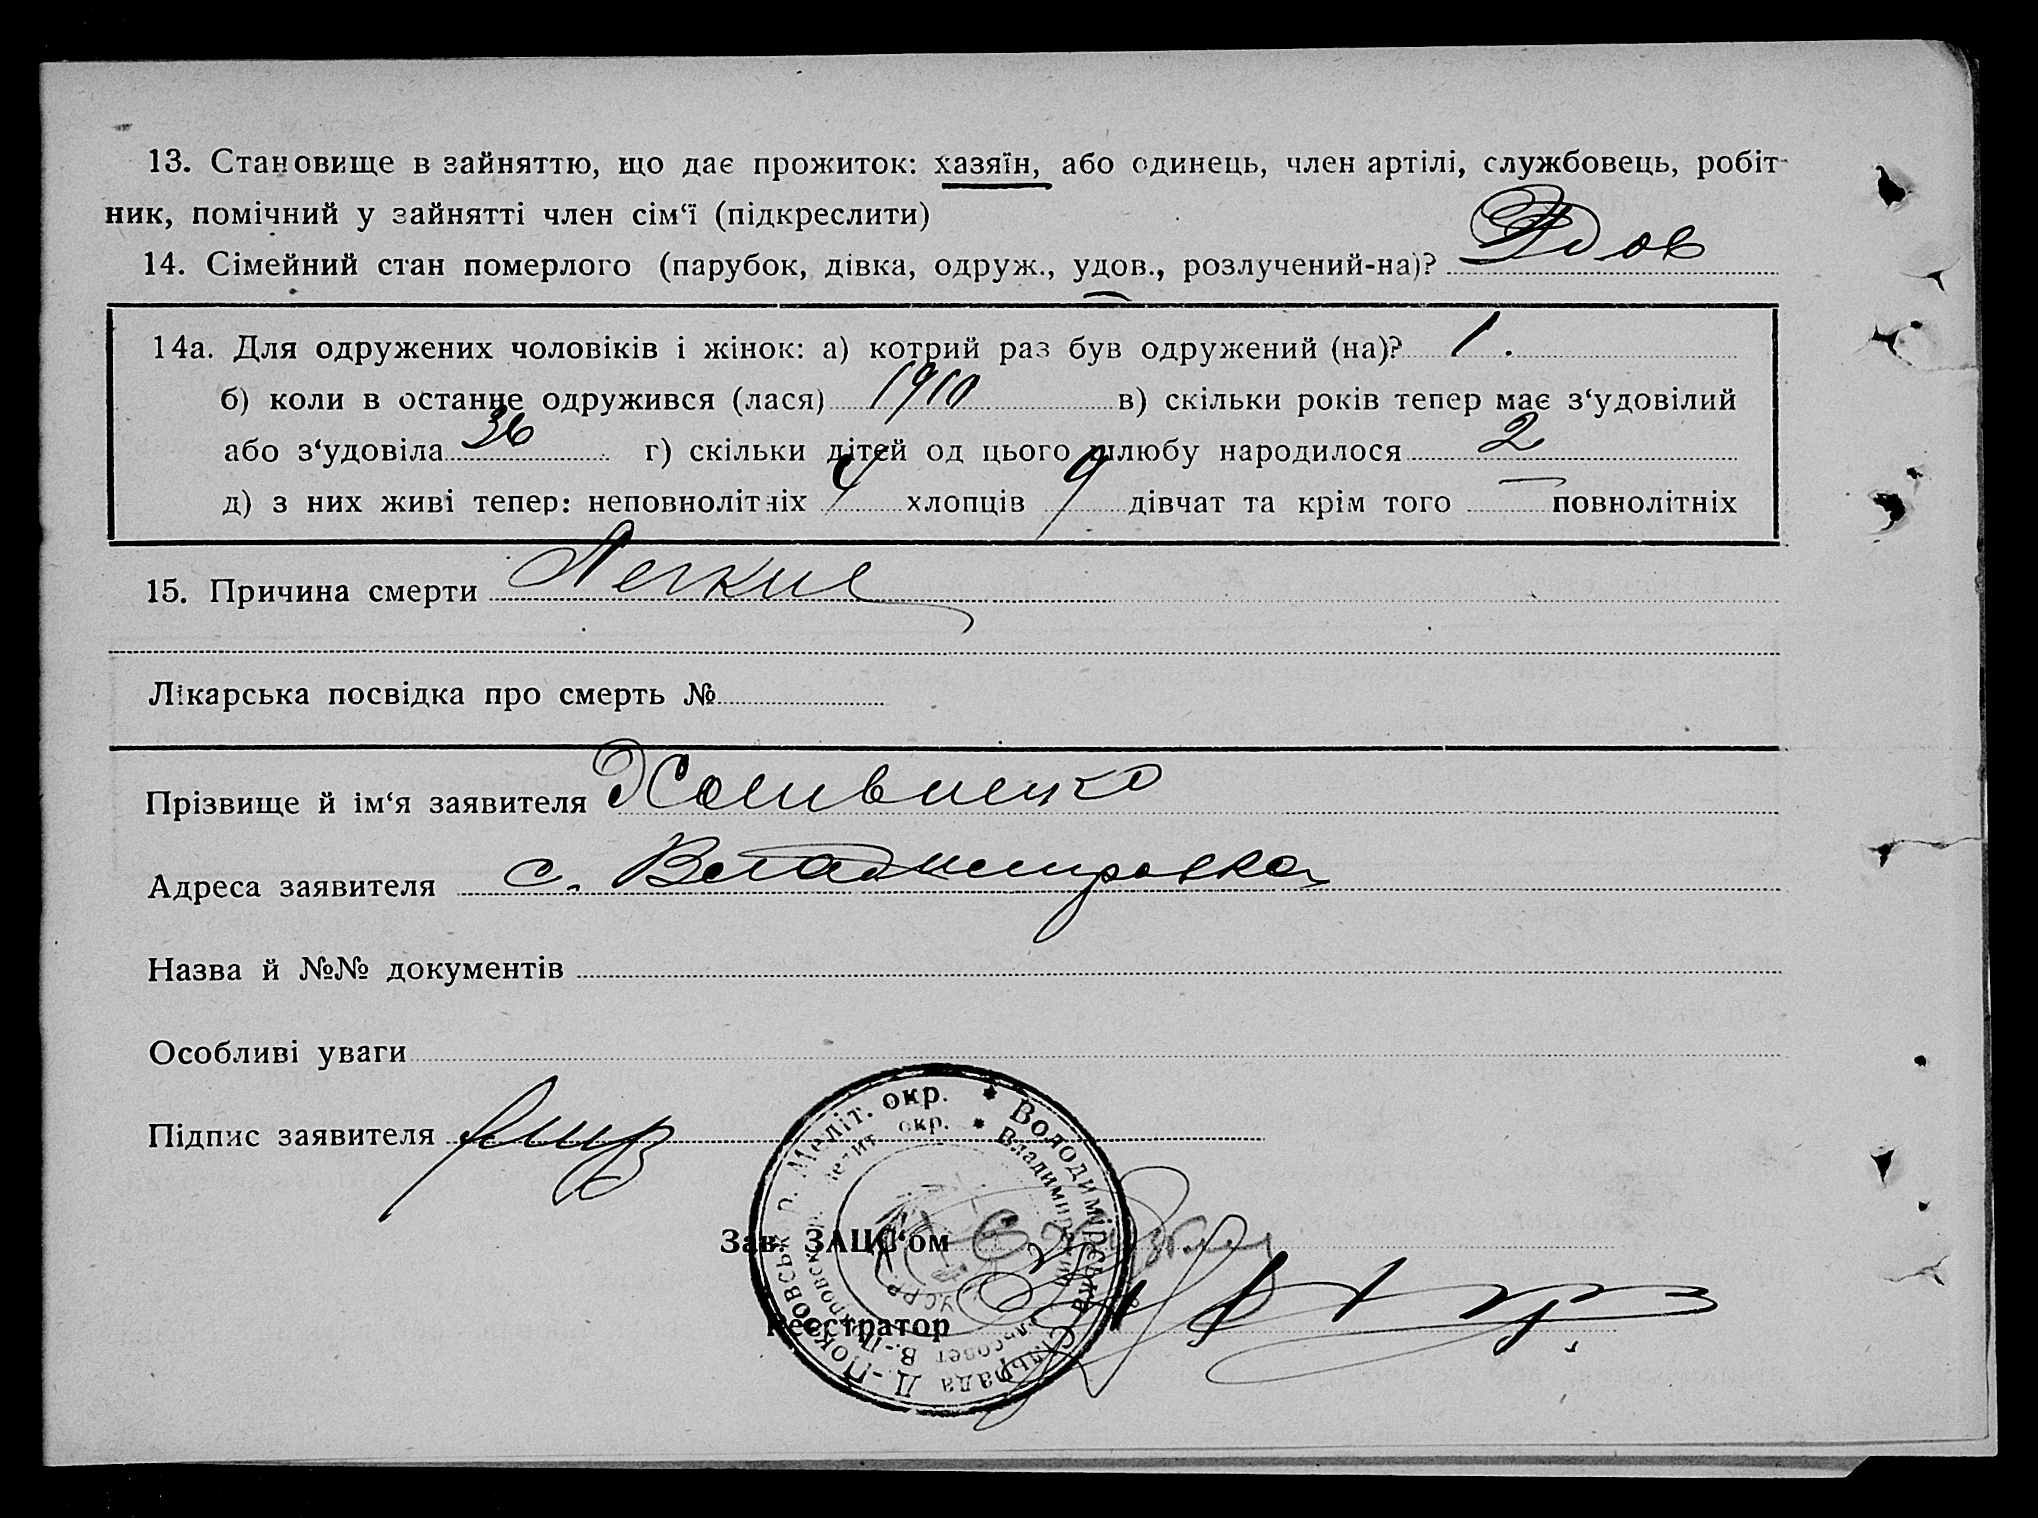 13. Становище в зайняттю, що дає прожиток: хазяїн, або одинець, член артілі, службовець, робіт-
ник, помічний у зайнятті член сім‘ї (підкреслити)
14. Сімейний стан померлого (парубок, дівка, одруж., удов., розлучений-на)? Удов
14а. Для одружених чоловіків і жінок: а) котрий раз був одружений (на)? 1.
б) коли в останнє одружився (лася) 1910 в) скільки років тепер має з‘удовілий
або з‘удовіла 36 г) скільки дітей од цього шлюбу народилося 2
д) з них живі тепер: неповнолітніх хлопців дівчат та крім того — повнолітніх
15. Причина смерти Легкие
Лікарська посвідка про смерть №
Прізвище й ім‘я заявителя
Адреса заявителя с. Владимировка
Назва й №№ документів
Особливі уваги
Підпис заявителя
Зав. ЗАЦС‘ом
Реєстратор
Володимірська Сільрада Д.-Покровськ. р. Меліт. окр.